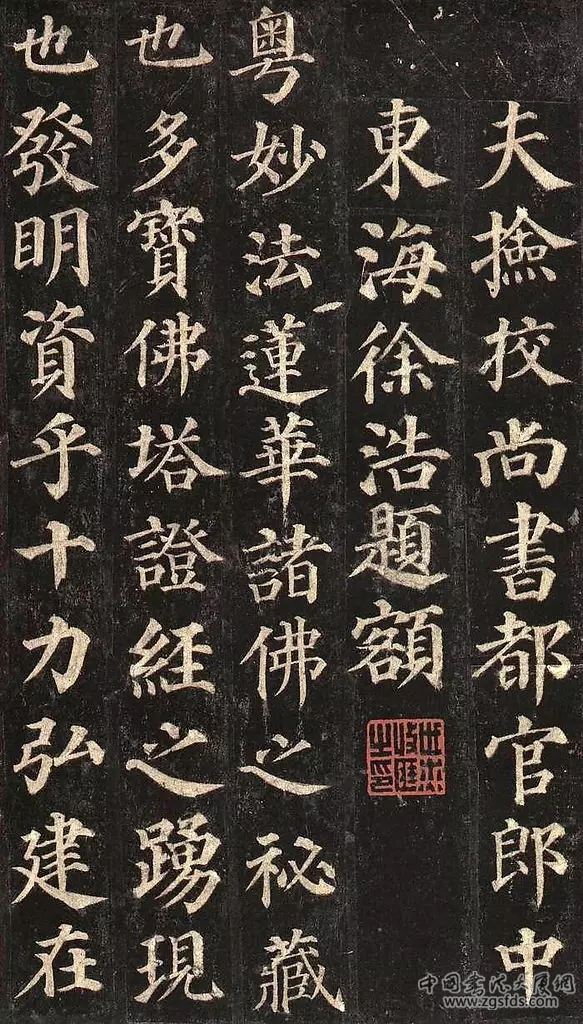 夫撿挍尚書都官郎中
東海徐浩題額
粵妙法蓮華諸佛之祕藏
也多寶佛塔證經之踴現
也發明資乎十力弘建在
中国书法大展网
www.zgsfds.com